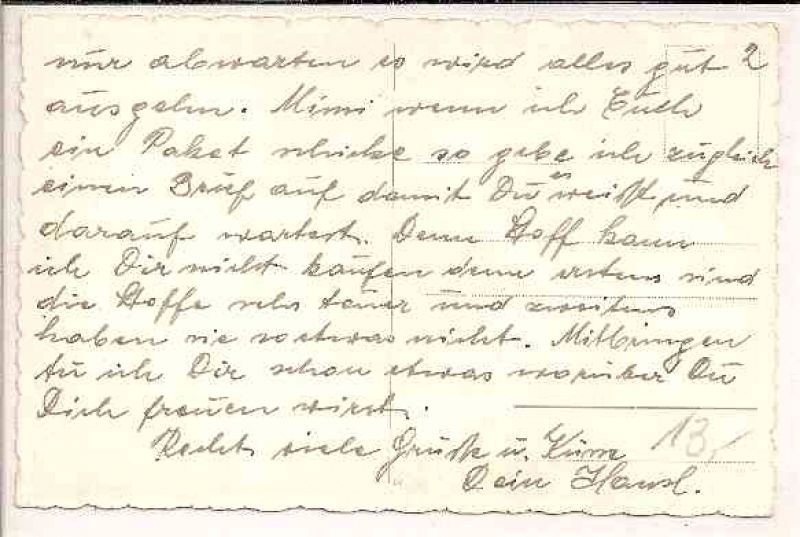 nur abwarten so wird alles gut 2
ausgehn. Mimi wenn ich Euch
ein Paket schicke so gebe ich zugleich
einen Brief auf damit Du es weißt und
darauf wartest. Denn Stoff kann
ich Dir nicht kaufen denn erstens sind
die Stoffe sehr teuer und zweitens
haben sie so etwas nicht. Mitbringen
tu ich Dir schon etwas worüber Du
Dich freuen wirst.
Recht viele Grüße u. Küsse 13/
Dein Hansl.